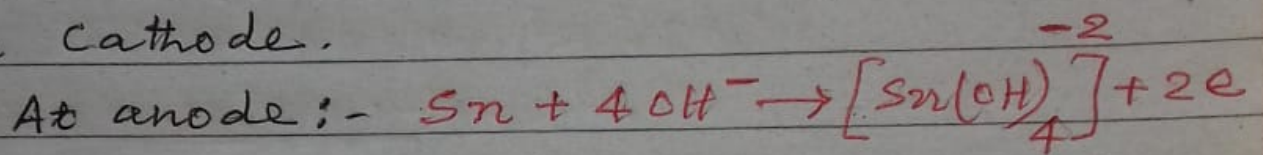 . Cathode.
At anode :- Sn + 4OH⁻ → [Sn(OH)₄]⁻² + 2e